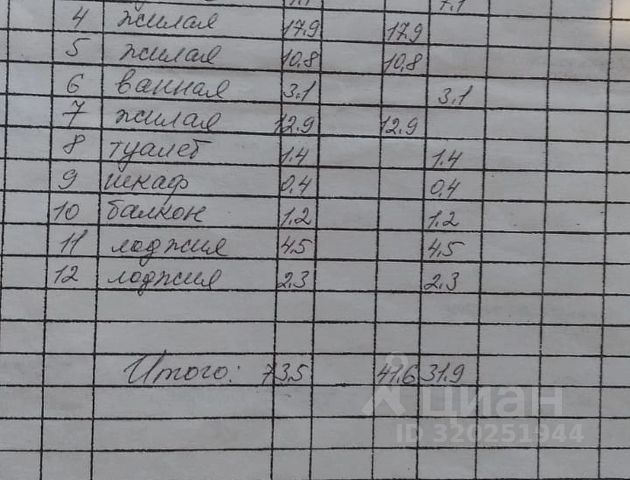 4 жилая 17,9 17,9
5 жилая 10,8 10,8
6 ванная 3,1 3,1
7 жилая 12,9 12,9
8 туалет 1,4 1,4
9 шкаф 0,4 0,4
10 балкон 1,2 1,2
11 лоджия 4,5 4,5
12 лоджия 2,3 2,3
Итого: 73,5 41,6 31,9
циан
ID 320251944